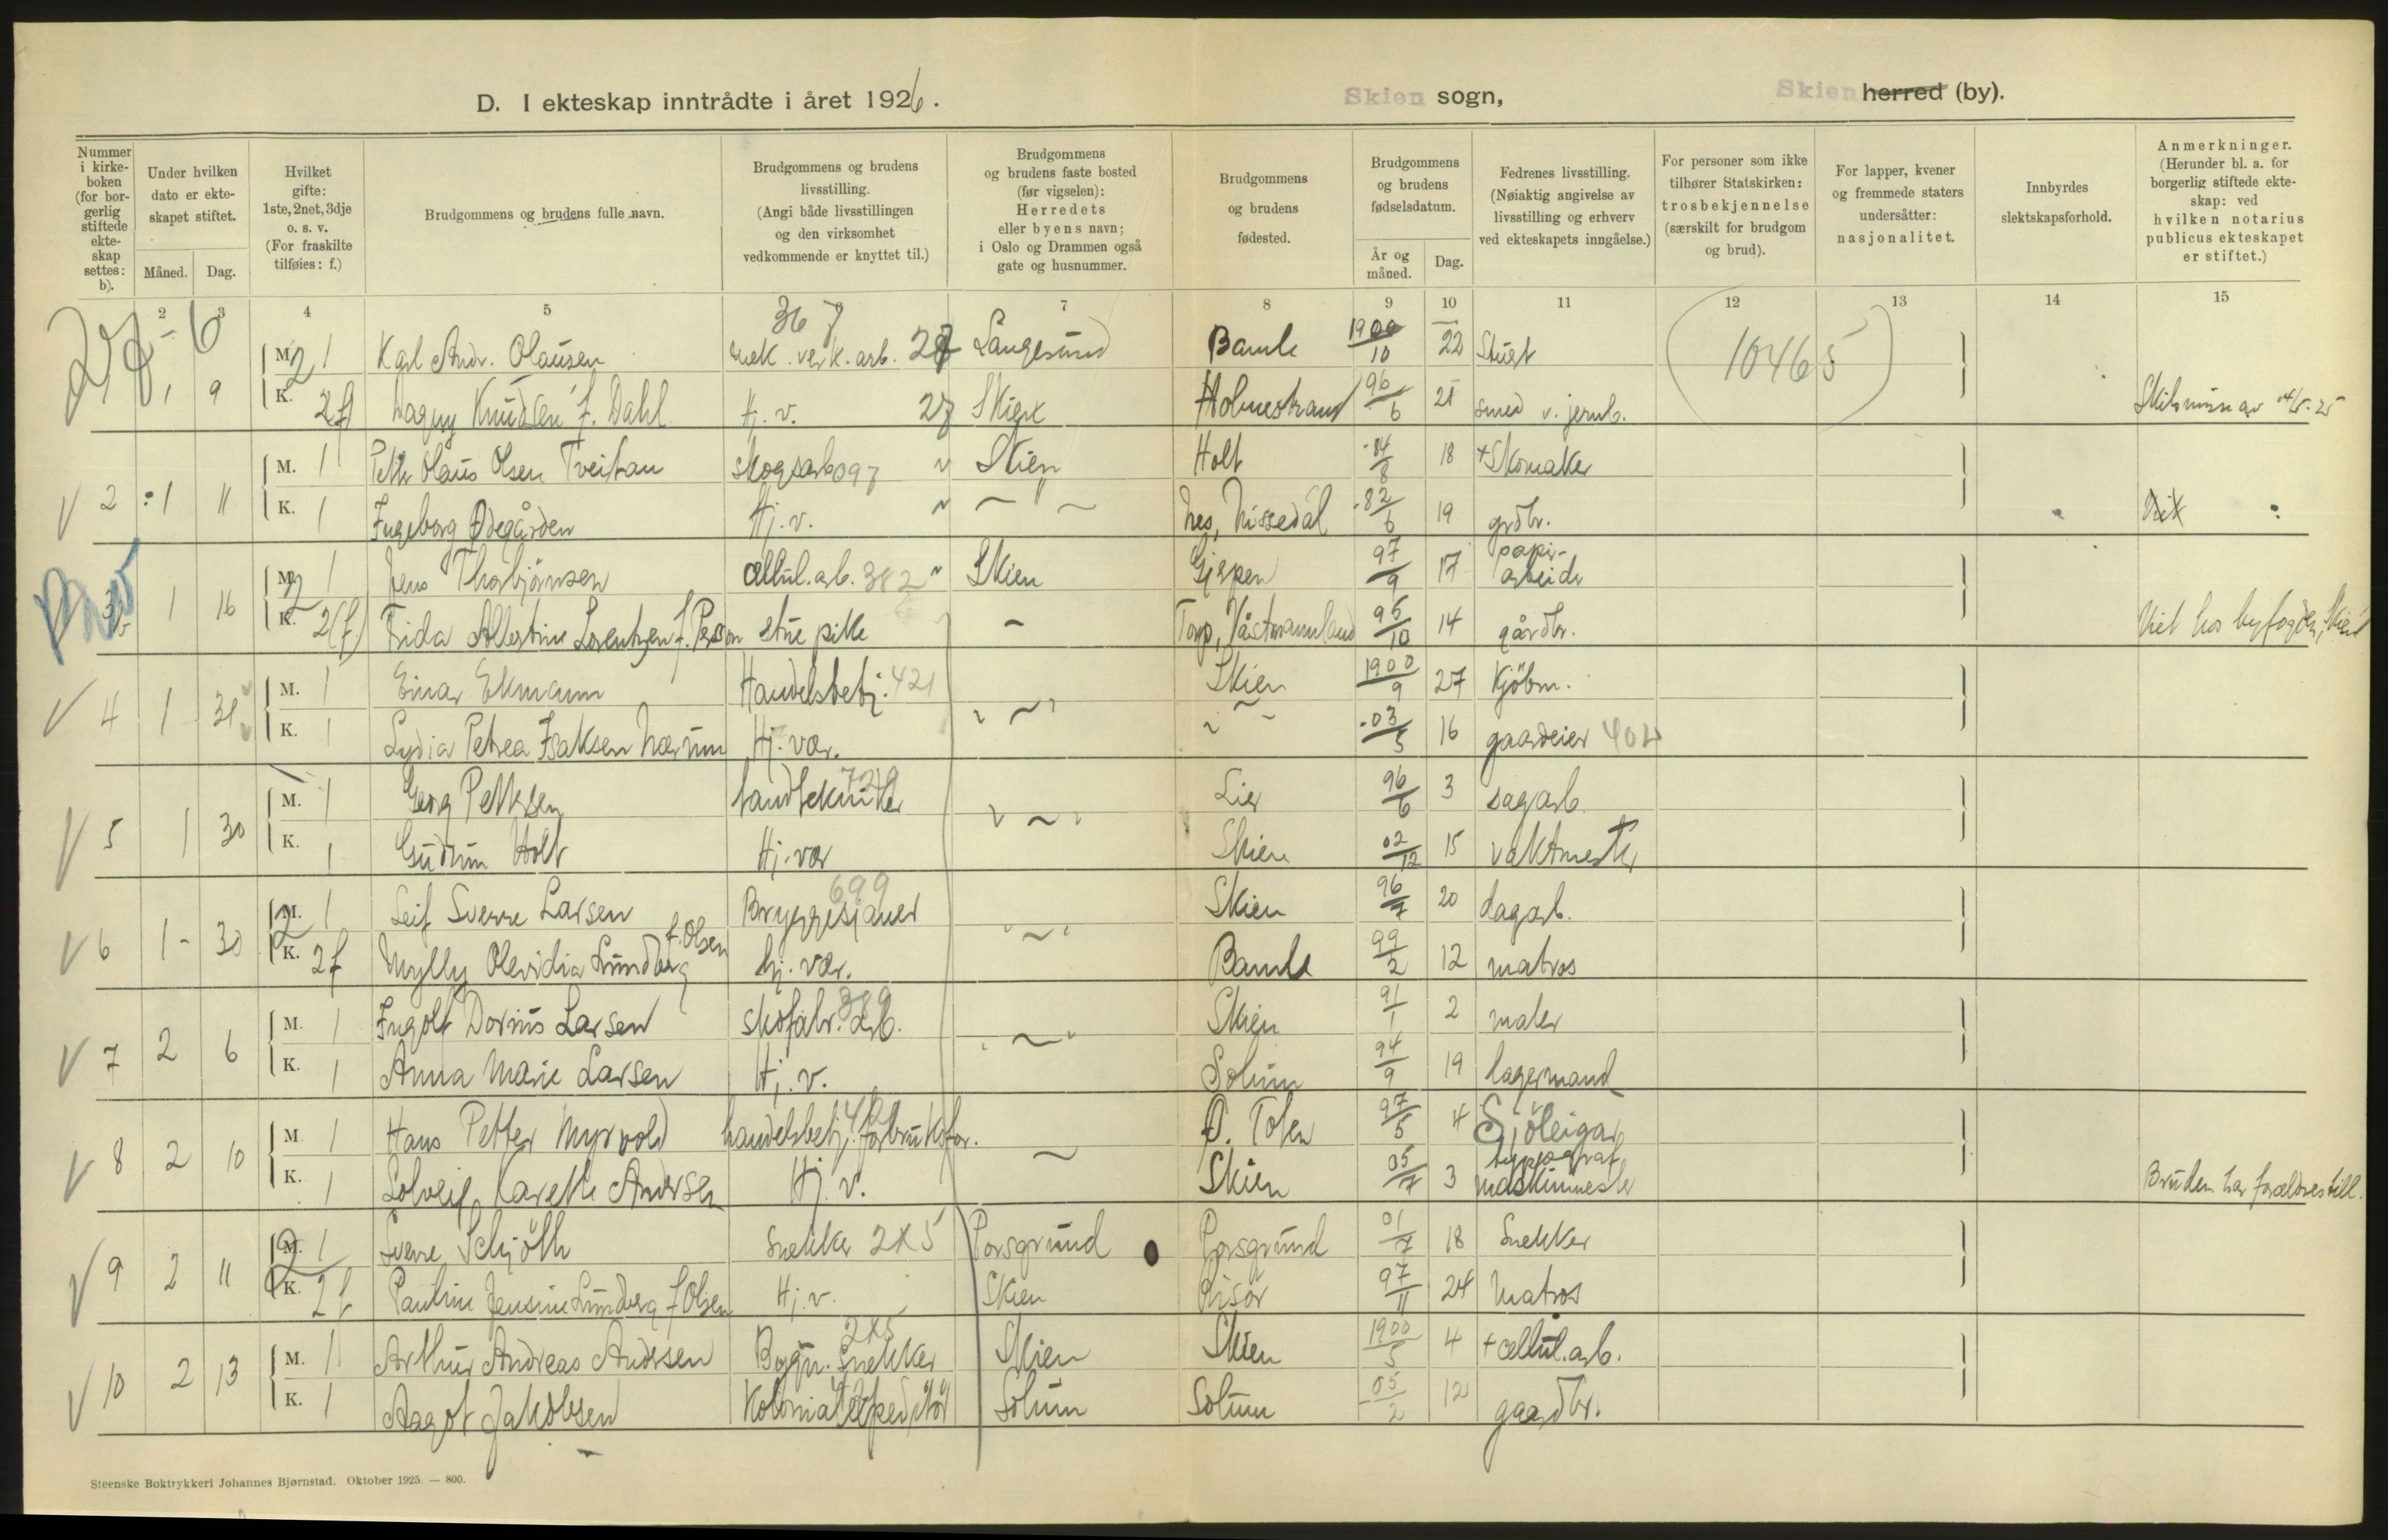 D. I ekteskap inntrådte i året 1926.
Skien sogn,
Skien herred (by).
Nummer i kirke-boken (for bor-gerlig stiftede ekte-skap settes: b).
Under hvilken dato er ekte-skapet stiftet.
Måned. Dag.
Hvilket gifte: 1ste, 2net, 3dje o. s. v. (For fraskilte tilføies: f.)
Brudgommens og brudens fulle navn.
Brudgommens og brudens livsstilling. (Angi både livsstillingen og den virksomhet vedkommende er knyttet til.)
Brudgommens og brudens faste bosted (før vigselen): Herredets eller byens navn; i Oslo og Drammen også gate og husnummer.
Brudgommens og brudens fødested.
Brudgommens og brudens fødselsdatum.
År og måned. Dag.
Fedrenes livsstilling. (Nøiaktig angivelse av livsstilling og erhverv ved ekteskapets inngåelse.)
For personer som ikke tilhører Statskirken: trosbekjennelse (særskilt for brudgom og brud).
For lapper, kvener og fremmede staters undersåtter: nasjonalitet.
Innbyrdes slektskapsforhold.
Anmerkninger. (Herunder bl. a. for borgerlig stiftede ekte-skap: ved hvilken notarius publicus ekteskapet er stiftet.)
2 3 4 5 7 8 9 10 11 12 13 14 15
367
M. 1 Karl Andr. Olausen mek. verk. arb. 27 Langesund Bamle 1900/10 22 10465
1 9 K. 2f Dagny Knudsen f. Dahl Hj. v. 27 Skien Holmestrand 96/6 21 smed v. jernb.
M. 1 Petter Olaus Olsen Tveitan skogsarb 097 Skien Holt -84/8 18 +Skomaker
2 1 11 K. 1 Ingeborg Ødegården Hj. v. - " - Nes, Nissedal -82/6 19 grdbr.
M. 1 Jens Thorbjörnsen cellul. arb. 382 Skien Gjerpen 97/9 17 papir-arbeider
3 1 16 K. 2(f) Frida Albertine Lorentzen f. Person stuepike Torp, Västmannland 95/10 14 gårdbr. Viet hos byfogden, Skien
M. 1 Einar Ekmann Handelsbetj. 421 Skien 1900/9 27 Kjöbm.
4 1 31 K. 1 Lydia Petrea Isaksen Nærum Hj. vær. -03/5 16 gaardeier 402
M. 1 Georg Pettersen tandtekniker 729 Lier 96/6 3 sagarb.
5 1 30 K. 1 Gudrun Holt Hj. vær Skien 02/12 15 vaktmester
M. 1 Leif Sverre Larsen Bryggesjauer 699 Skien 96/7 20 dagarb.
6 1 - 30 K. 2f Mylly Olevidia Lundberg f. Olsen hj. vær. Bamle 99/2 12 matros
M. 1 Ingolf Dorius Larsen skofabr. arb. 389 Skien 91/1 2 maler
7 2 6 K. 1 Anna Marie Larsen Hj. v. Solum 94/9 19 lagermand
M. 1 Hans Petter Myrvold handelsbetj. forbruksfor. Ö. Toten 97/5 4
8 2 10 K. 1 Solveig Karethe Andersen Hj. v. Skien 05/7 3 typograf maskinmester Bruden har foreldres till.
M. 1 Sverre Schjöth Snekker 2X5 Porsgrund Porsgrund 01/7 18 Snekker
9 2 11 K. 2f Pauline Jensine Lundberg f. Olsen Hj. v. Skien Risör 97/11 24 Matros
M. 1 Arthur Andreas Andersen Bygn. Snekker 2X5 Skien Skien 1900/5 4 + cellul. arb.
10 2 13 K. 1 Aagot Jakobsen Kolonialexpeditör Solum Solum -05/2 12 gaardbr.
Steenske Boktrykkeri Johannes Bjørnstad. Oktober 1925. — 800.